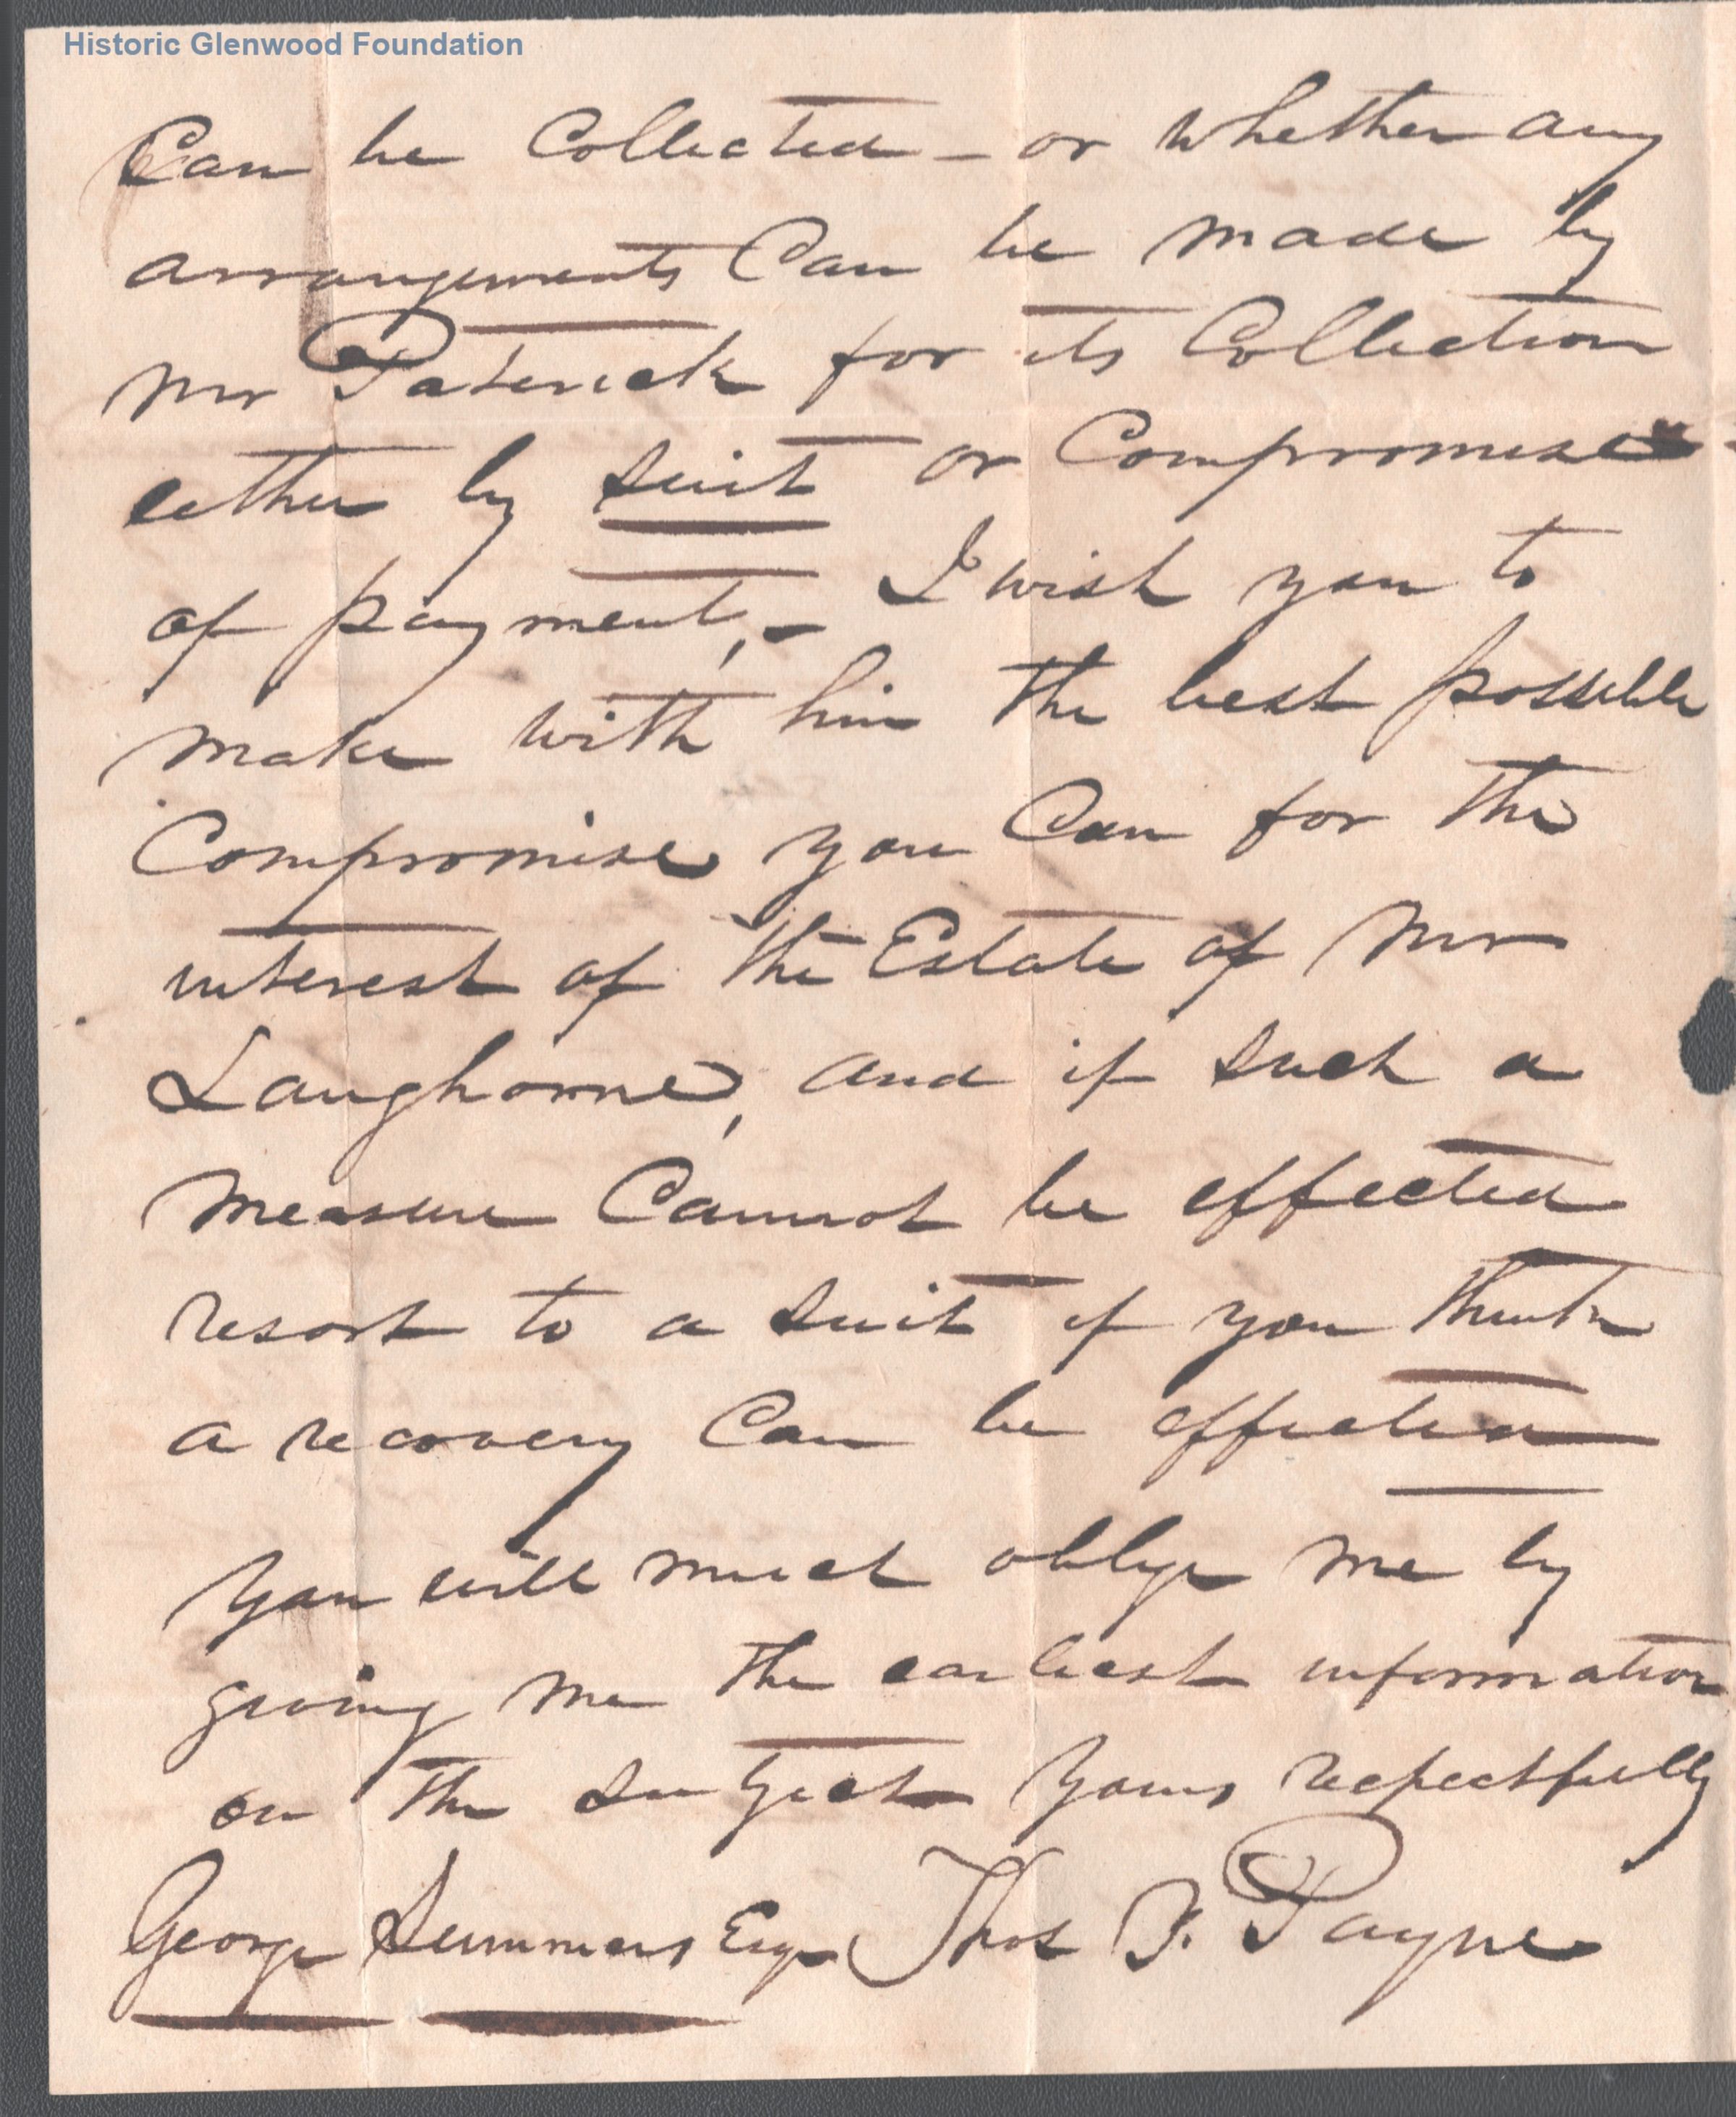 Historic Glenwood Foundation
Can be Collected – or whether any
arrangements Can be made by
Mr Paterick for its Collection
either by suit or Compromise
of payment, – I wish you to
make with him the best possible
Compromise you Can for the
interest of the Estate of Mr
Langhorne, and if such a
measure Cannot be effected
resort to a suit if you think
a recovery Can be effected
You will much oblige me by
giving me the earliest information
on the subject Yours respectfully
George Summers Esqr Thos Payne